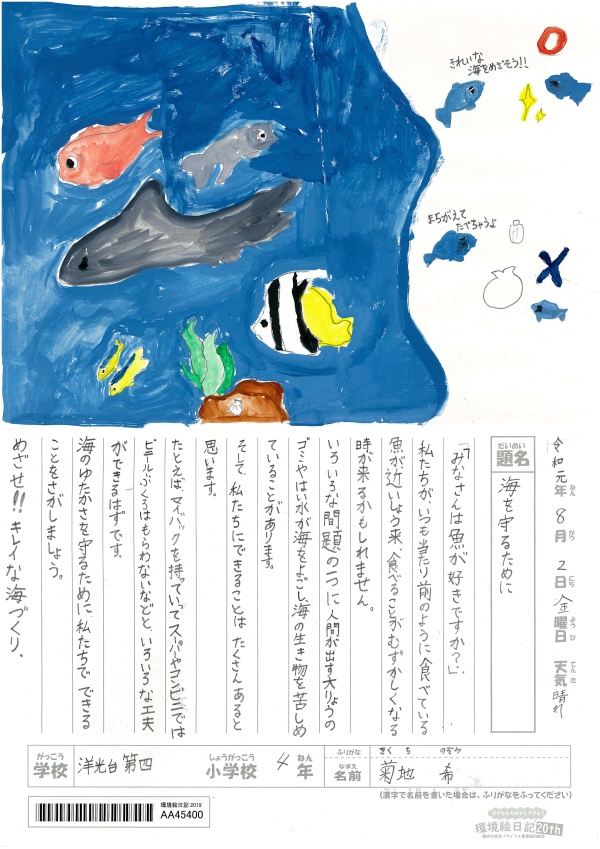 きれいな
海をめざそう!!
まちがえて
たべちゃうよ
令和元年 8月 2日 金曜日 天気 晴れ
ねん がつ にち ようび てんき
だいめい
題名
海を守るために
「みなさんは魚が好きですか?」.
私たちがいつも当たり前のように食べている
魚が近いしょう来、食べることがむずかしくなる
時が来るかもしれません。
いろいろな問題の一つに人間が出す大りょうの
ゴミやはい水が海をよごし、海の生き物を苦しめ
ていることがあります。
そして、私たちにできることは たくさんあると
思います。
たとえば、マイバックを持っていってスーパーやコンビニでは
ビニールぶくろはもらわないなどと、いろいろな工夫
ができるはずです。
海のゆたかさを守るために、私たちで できる
ことをさがしましょう。
めざせ!! キレイな海づくり.
がっこう しょうがっこう ねん ふりがな きくち のぞみ
学校 洋光台第四 小学校 4年
なまえ
名前 菊地 希
(漢字で名前を書いた場合は、ふりがなをふってください)
環境絵日記2019
AA45400
環境絵日記20th